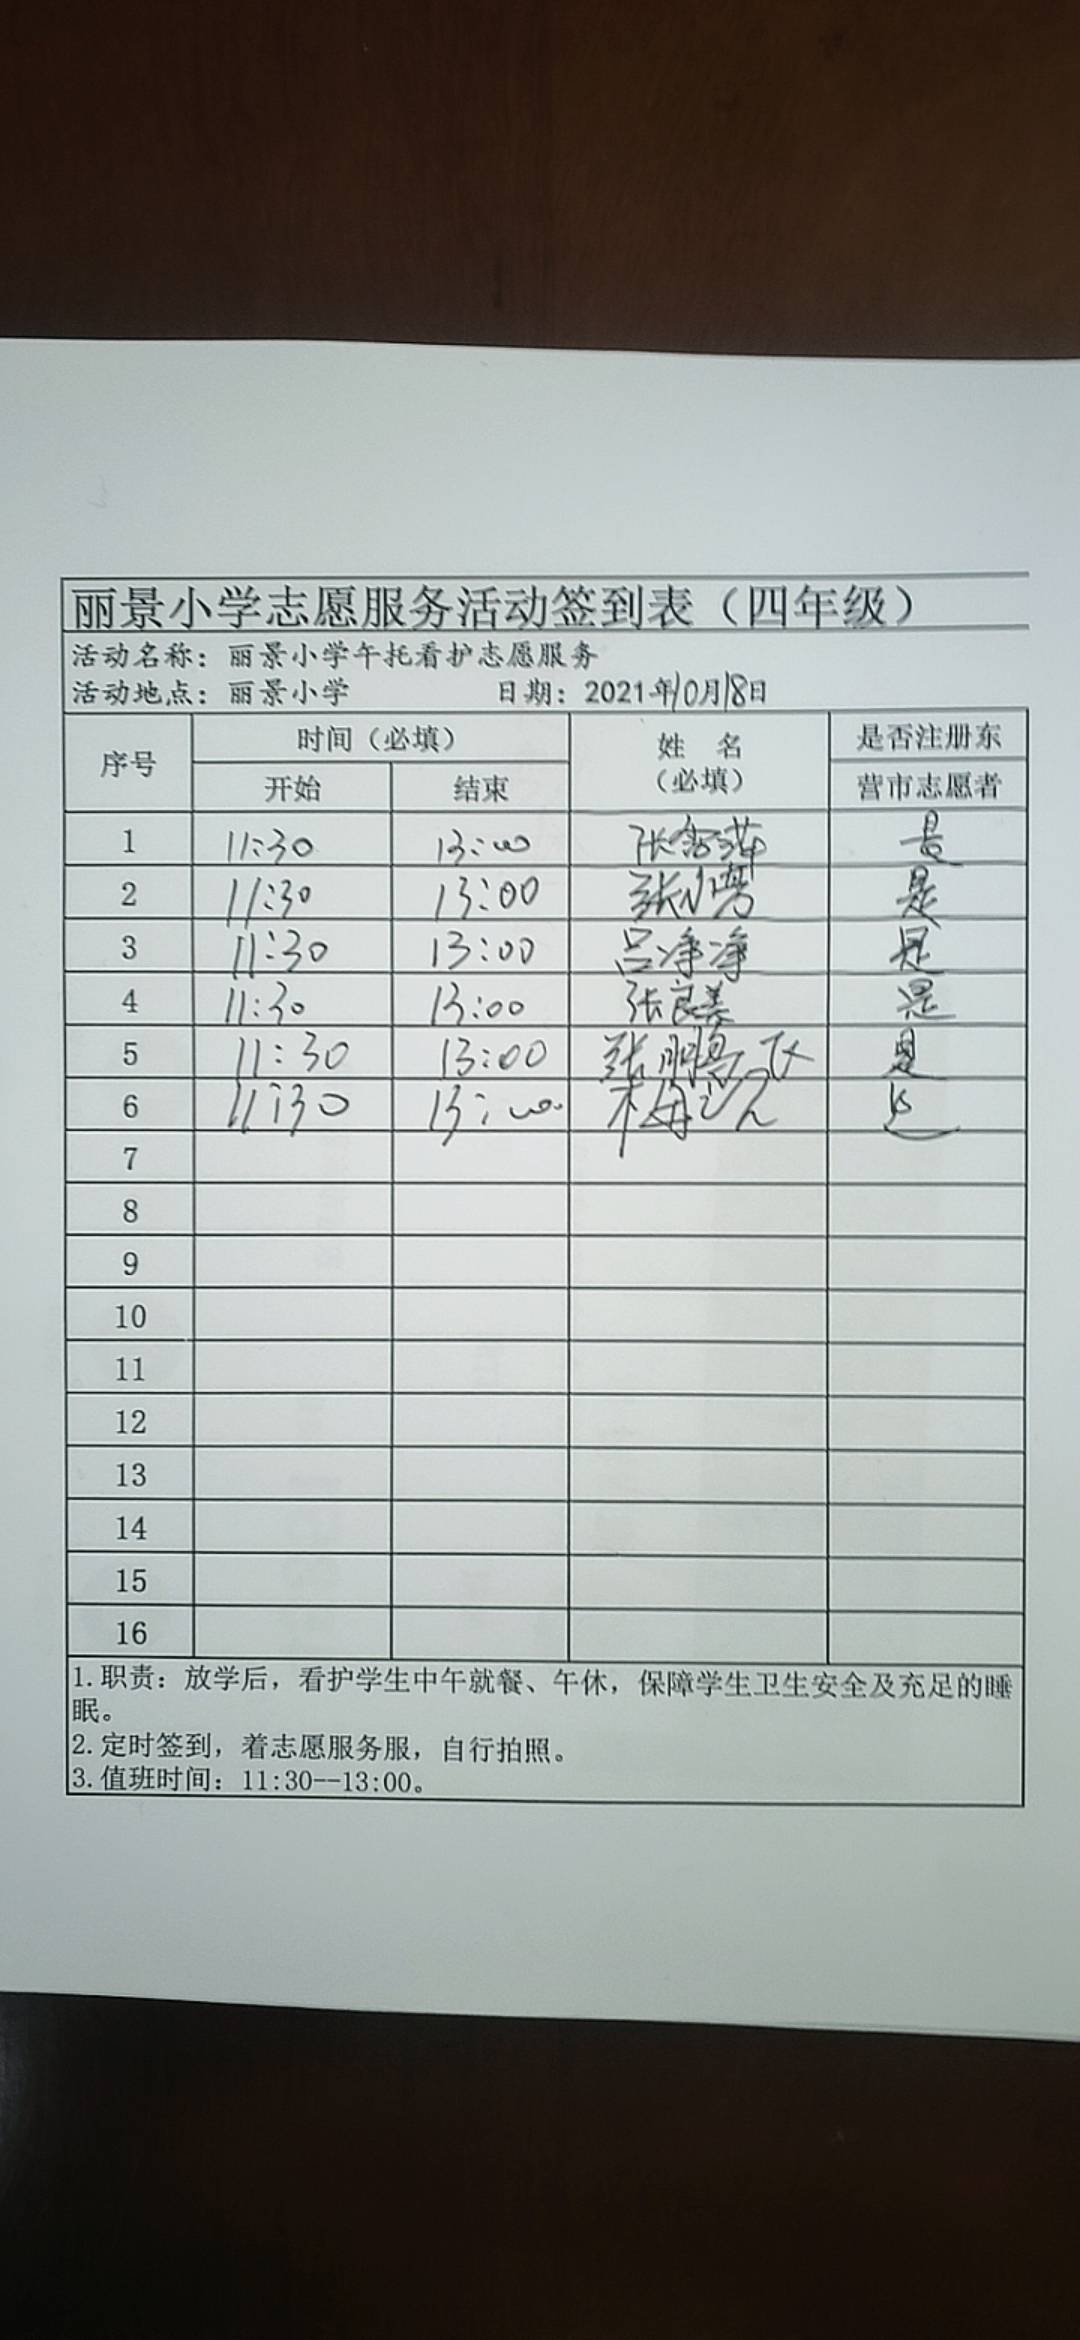 丽景小学志愿服务活动签到表（四年级）
活动名称：丽景小学午托看护志愿服务
活动地点：丽景小学 日期：2021年10月18日
序号 时间（必填） 姓 名 是否注册东
开始 结束 （必填） 营市志愿者
1 11:30 13:00 张 是
2 11:30 13:00 张小 是
3 11:30 13:00 吕净净 是
4 11:30 13:00 张良美 是
5 11:30 13:00 张 是
6 11:30 13:00 梅 是
7
8
9
10
11
12
13
14
15
16
1.职责：放学后，看护学生中午就餐、午休，保障学生卫生安全及充足的睡
眠。
2.定时签到，着志愿服务服，自行拍照。
3.值班时间：11:30--13:00。